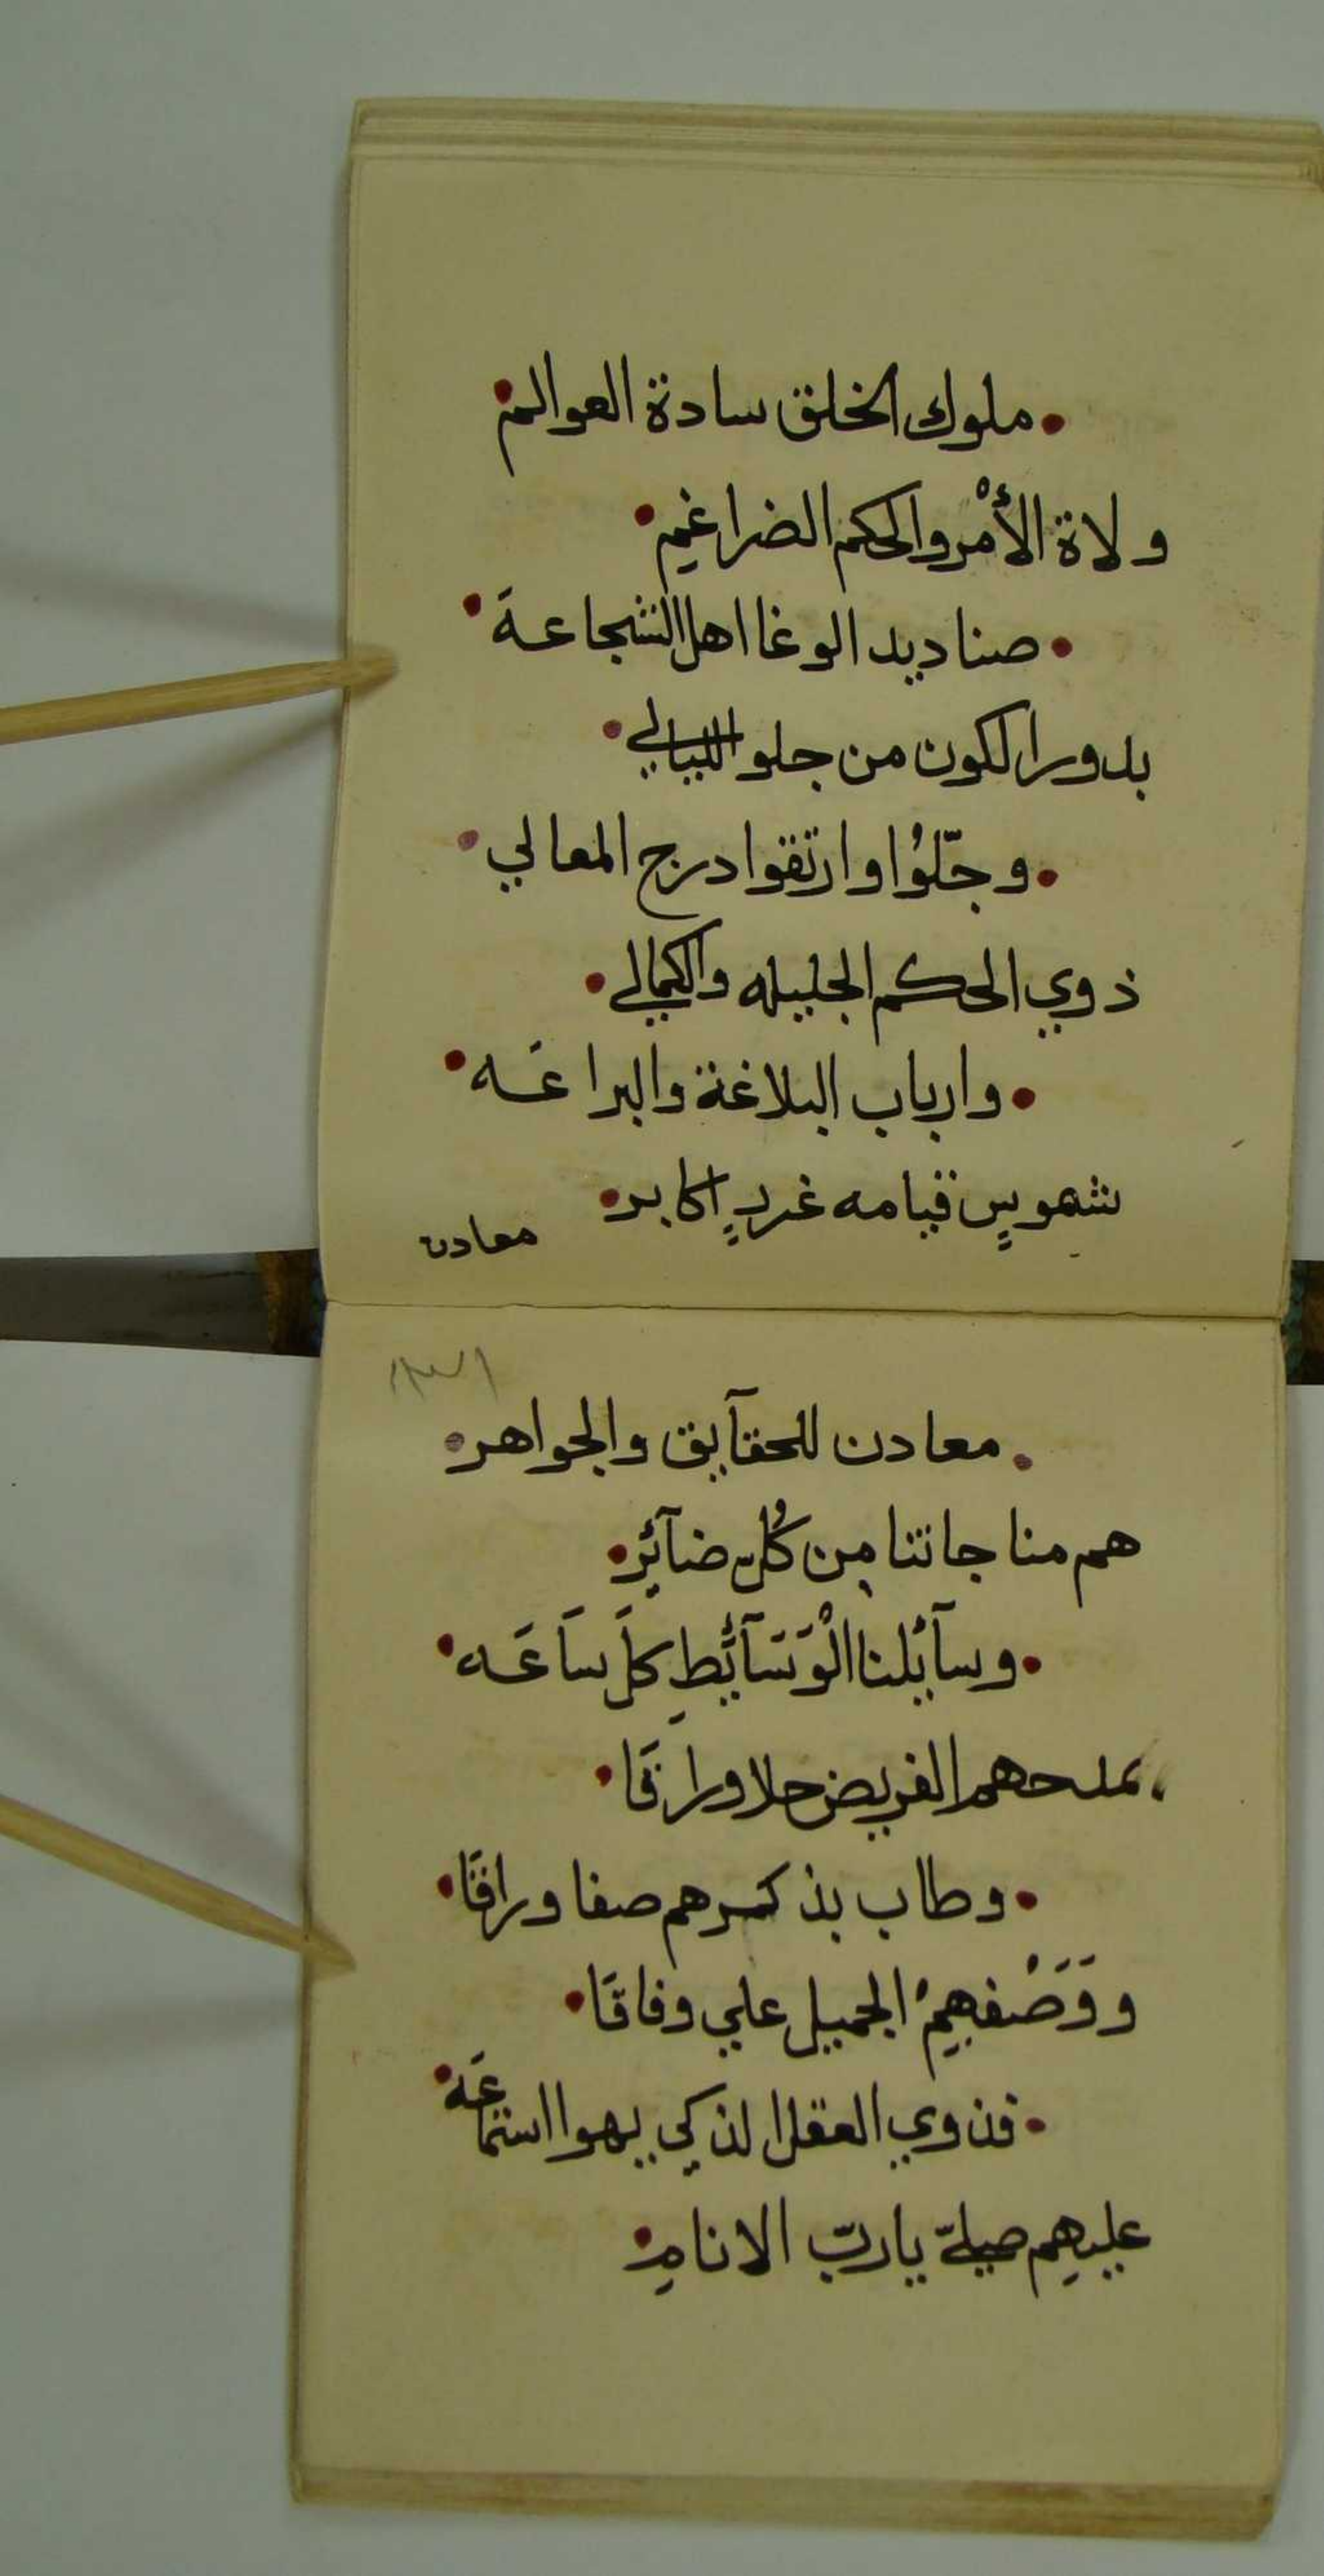 ملوك الخلق سادة العوالم
ولاة الأمْر والحكم الضراغيم
صناديد الوغا اهل الشجاعة
بدور الكون من جلو الليالي
وجلّوُا وارتقوا درج المعالي
ذوي الحكم الجليله والكمالي
وارباب البلاغة والبراعَه
شموسٍ قيامه غررٍ اكابر
معادن
١٣١
معادن للحقآيق والجواهر
هم مناجاتنا مِن كُل ضآئرِ
وسآئلنا الْوَسَآئَطِ كلَ سَاعَه
بمدحهم القريض حلا وراقَا
وطاب بذكرهم صفا وراقَا
ووَصْفهِمْ الجميل علي وفاقَا
فذوي العقل الذكي يهوا استماعَه
عليهِم صلّ ياربّ الانامِ